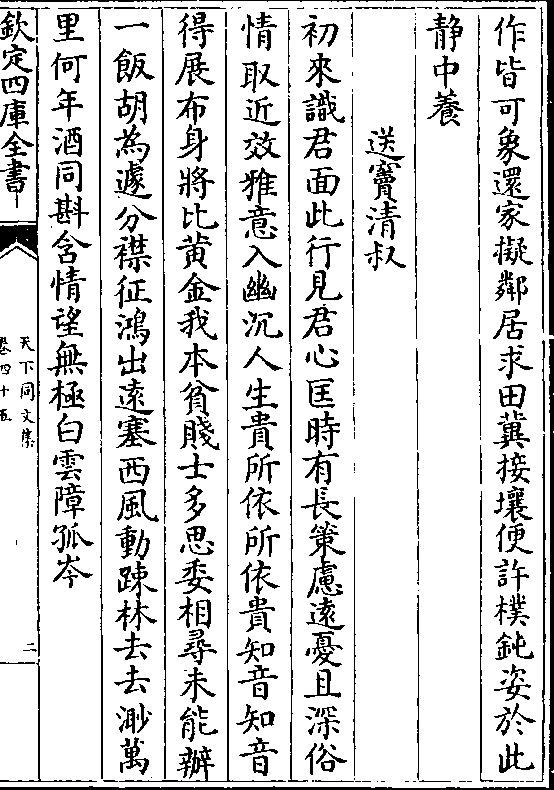 作皆可象還家擬鄰居求田冀接壤便許樸鈍姿於此
静中養
送竇清叔
初來識君面此行見君心匡時有長策慮遠憂且深俗
情取近效雅意入幽沉人生貴所依所依貴知音知音
得展布身將比黃金我本貧賤士多思委相尋未能辦
一飯胡為遽分襟征鴻出遠塞西風動踈林去去渺萬
里何年酒同斟含情望無極白雲障孤岑
欽定四庫全書
天下同文集
卷四十五
二